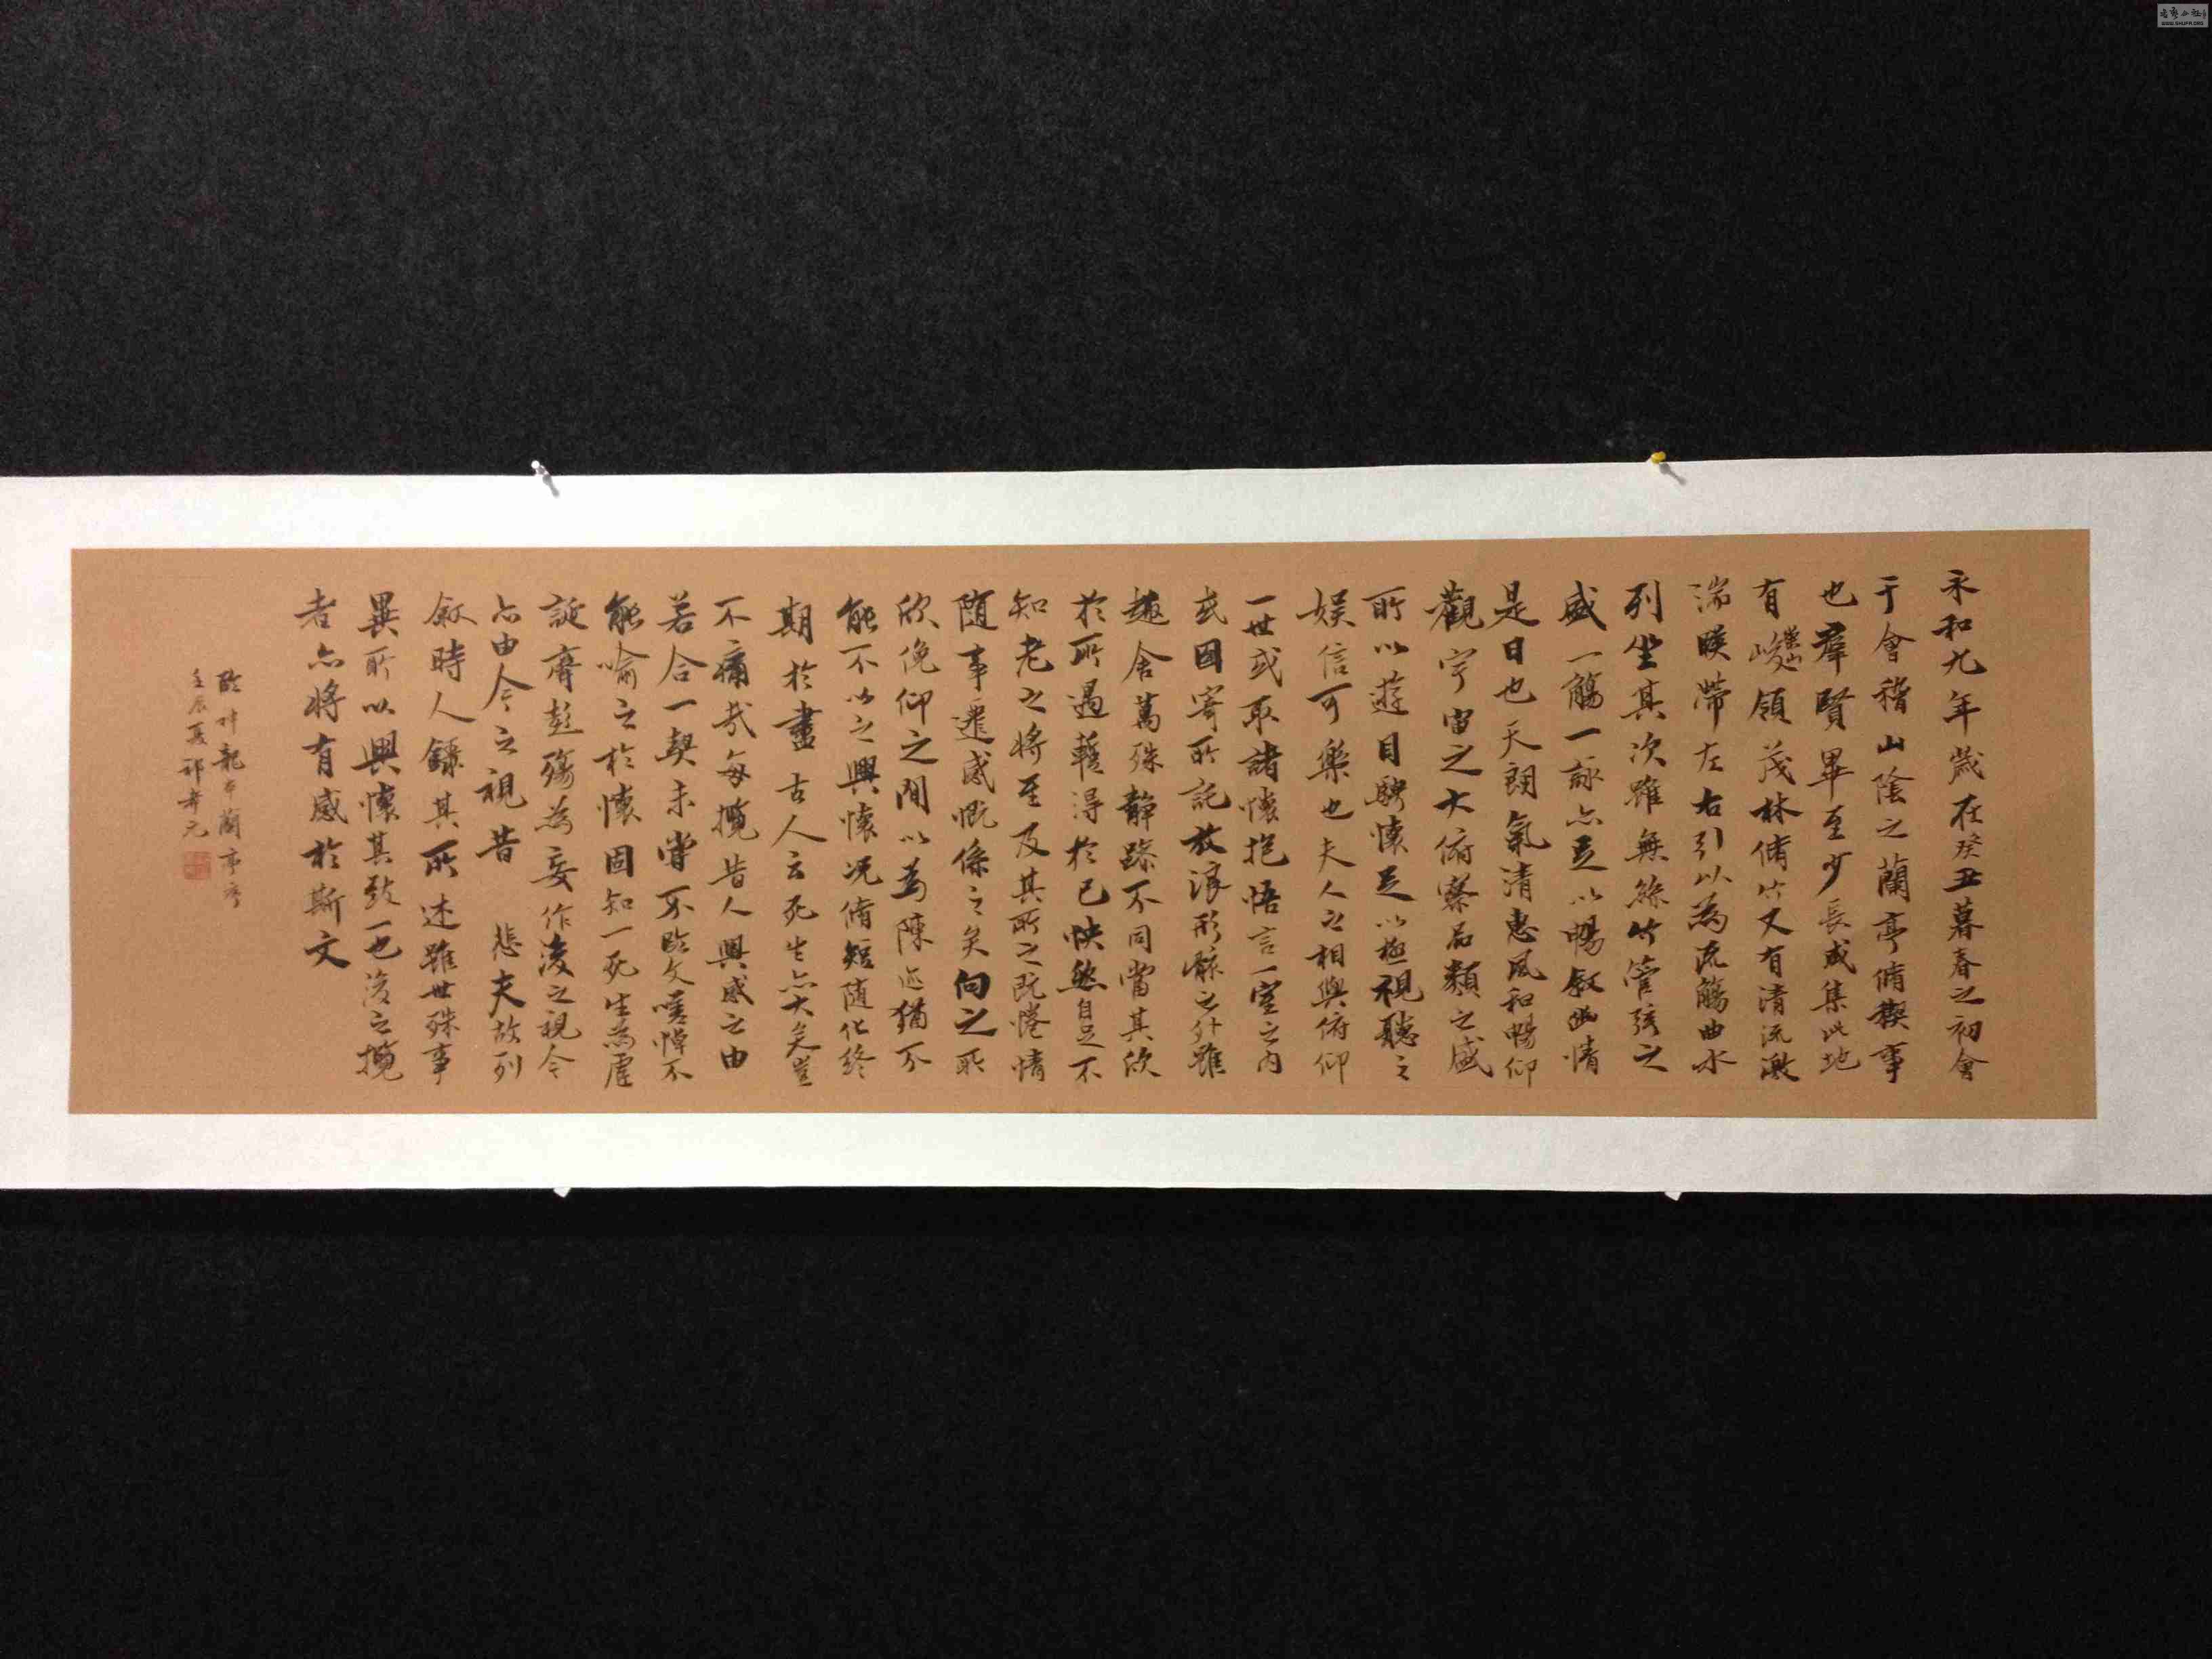 永和九年歲在癸丑暮春之初會
于會稽山陰之蘭亭脩稧事
也羣賢畢至少長咸集此地
有崇山峻領茂林脩竹又有清流激
湍暎帶左右引以為流觴曲水
列坐其次雖無絲竹管弦之
盛一觴一詠亦足以暢敘幽情
是日也天朗氣清惠風和暢仰
觀宇宙之大俯察品類之盛
所以遊目騁懷足以極視聽之
娛信可樂也夫人之相與俯仰
一世或取諸懷抱悟言一室之內
或因寄所託放浪形骸之外雖
趣舍萬殊靜躁不同當其欣
於所遇暫得於己怏然自足不
知老之將至及其所之既惓情
隨事遷感慨係之矣向之所
欣俛仰之間以為陳迹猶不
能不以之興懷況脩短隨化終
期於盡古人云死生亦大矣豈
不痛哉每攬昔人興感之由
若合一契未嘗不臨文嗟悼不
能喻之於懷固知一死生為虛
誕齊彭殤為妄作後之視今
亦由今之視昔 悲夫故列
敘時人錄其所述雖世殊事
異所以興懷其致一也後之攬
者亦將有感於斯文
臨神龍本蘭亭序
壬辰夏祁孝元
WWW.SHUFA.ORG